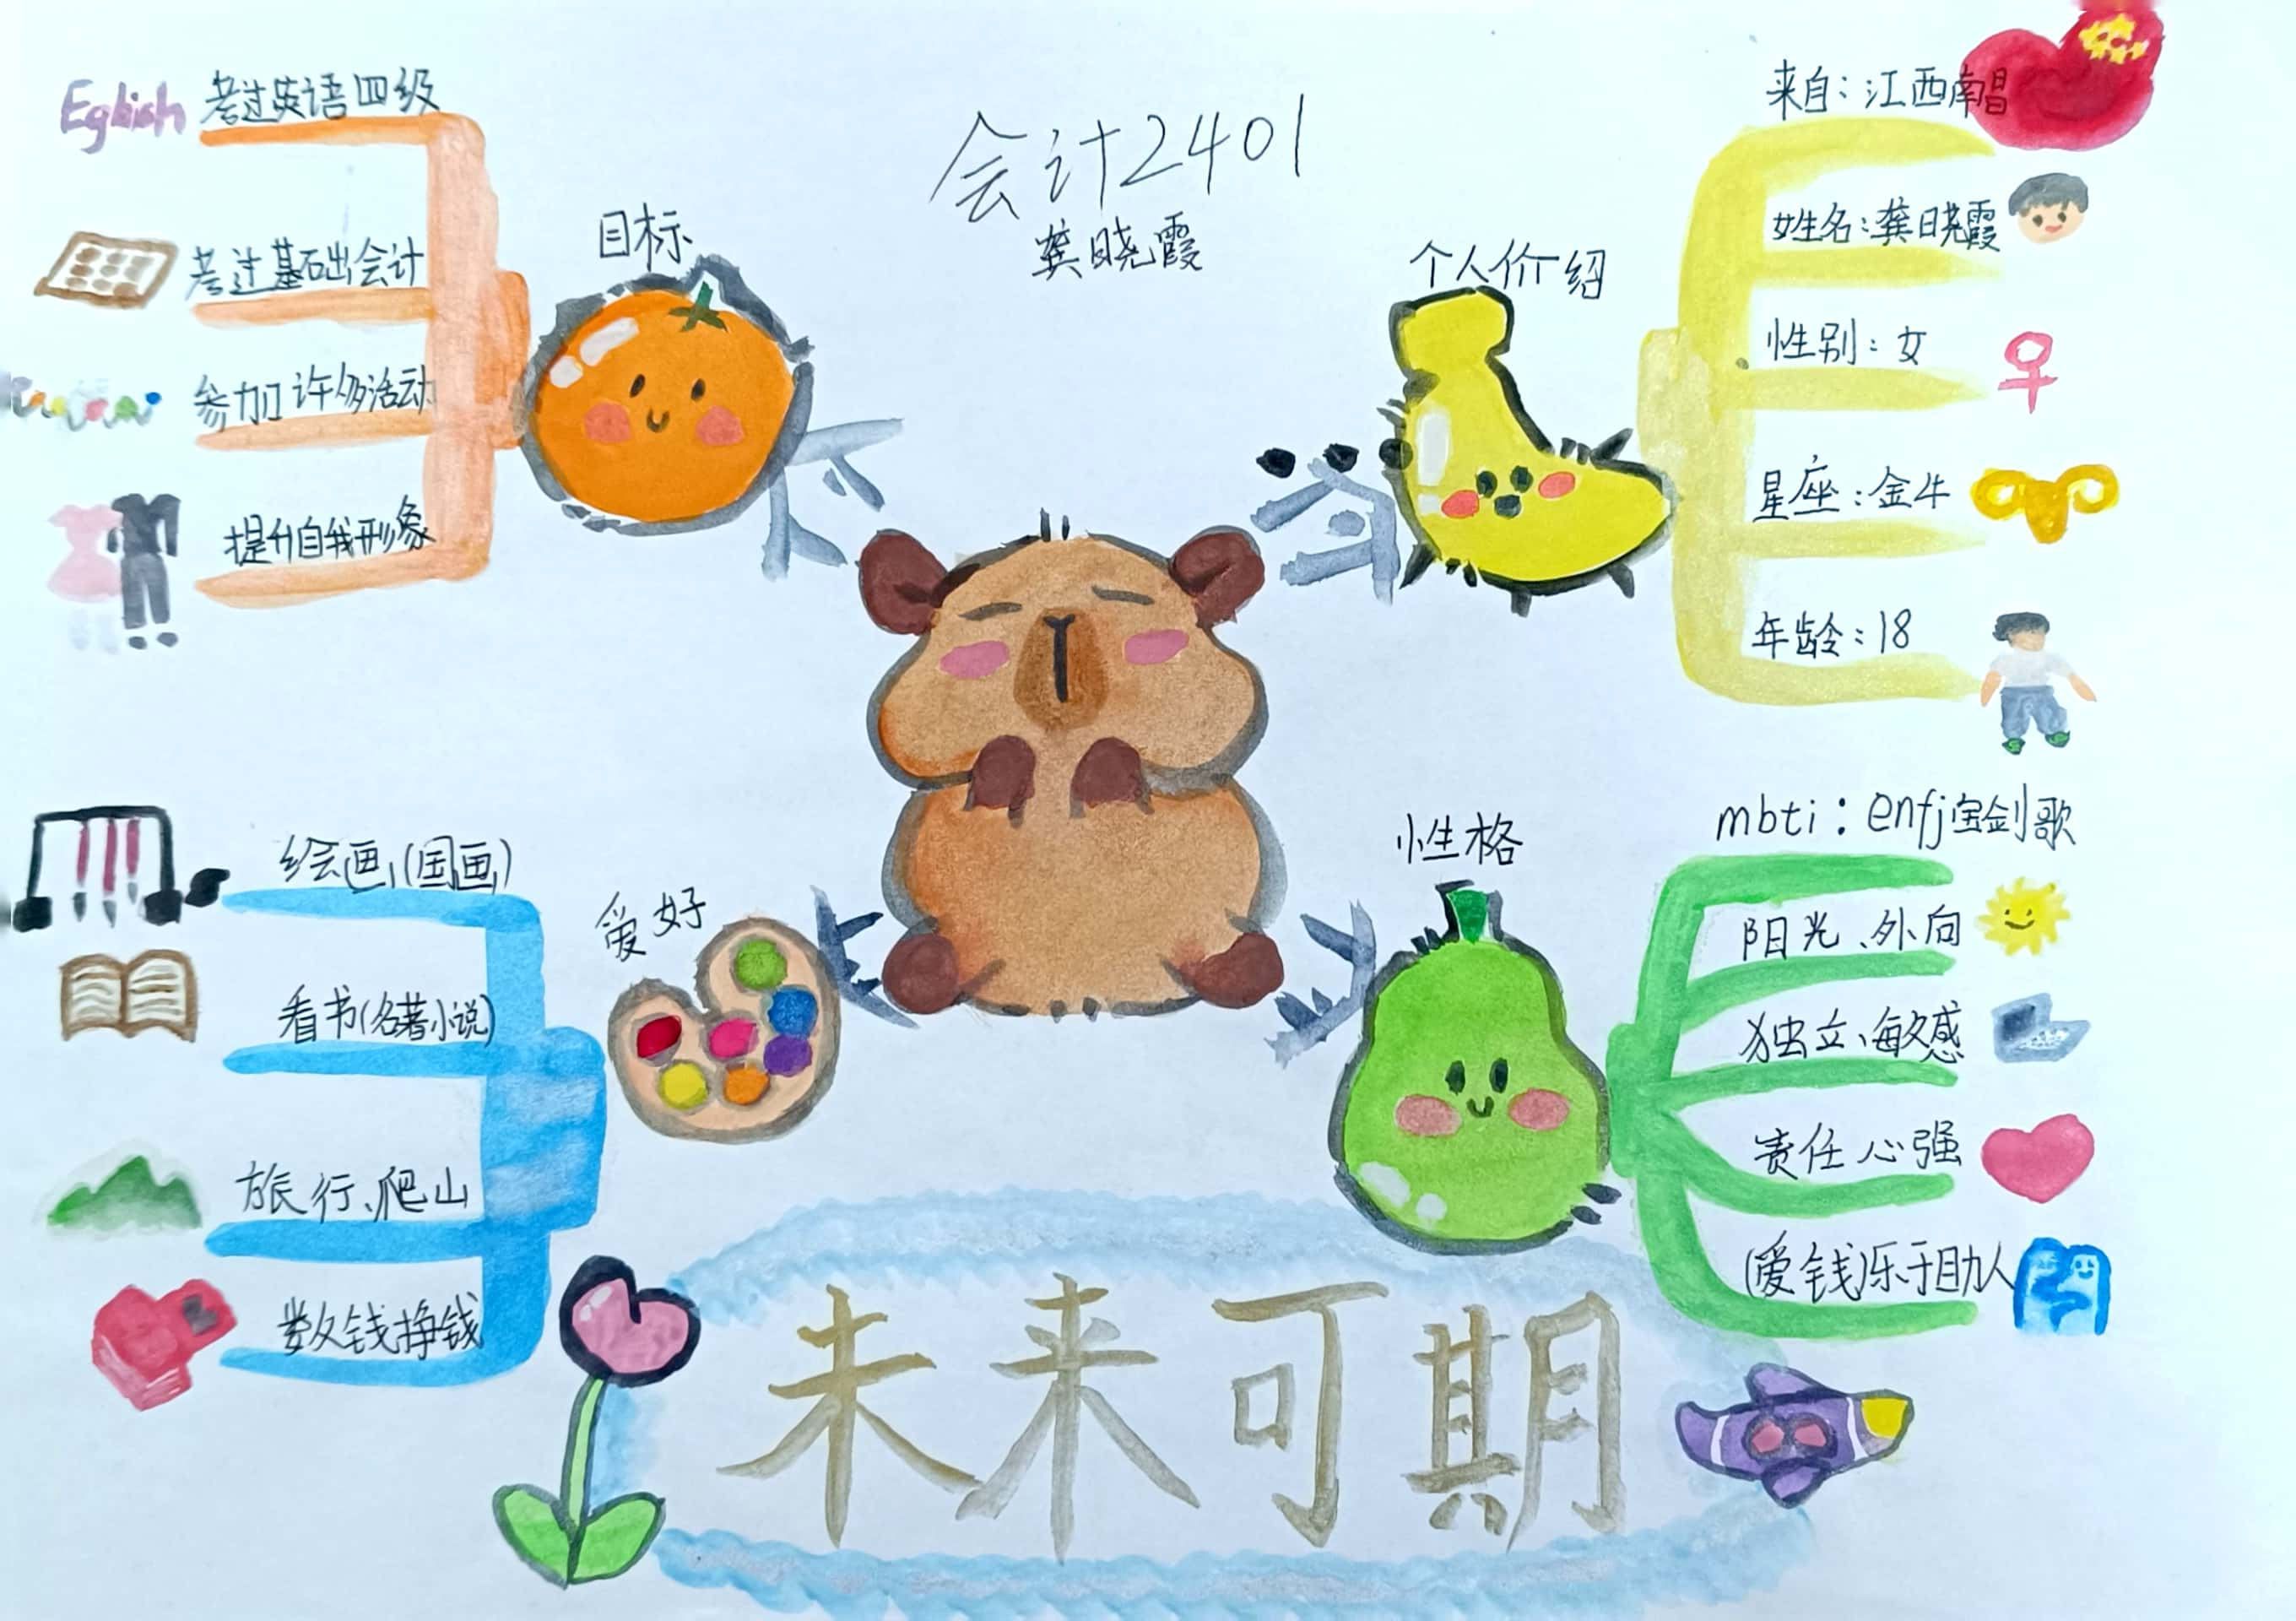 会计2401
龚晓霞
目标
Eglish
考过英语四级
考过基础会计
参加许多活动
提升自我形象
个人价绍
来自：江西南昌
姓名：龚晓霞
性别：女
星座：金牛
年龄：18
爱好
绘画(国画)
看书(名著小说)
旅行、爬山
数钱挣钱
性格
mbti：enfj宝剑歌
阳光、外向
独立、敏感
责任心强
(爱钱)乐于助人
未来可期